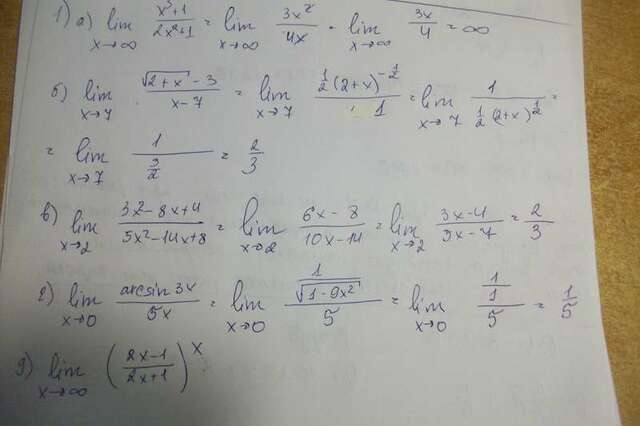 1) а) lim x→∞ (x³+1)/(2x²+1) = lim x→∞ 3x²/4x = lim x→∞ 3x/4 = ∞
б) lim x→7 (√(2+x) - 3)/(x-7) = lim x→7 (1/2 (2+x)^(-1/2))/1 = lim x→7 1/(1/2 (2+x)^(1/2)) =
= lim x→7 1/(3/2) = 2/3
в) lim x→2 (3x²-8x+4)/(5x²-14x+8) = lim x→2 (6x-8)/(10x-14) = lim x→2 (3x-4)/(5x-7) = 2/3
г) lim x→0 (arcsin 3x)/(5x) = lim x→0 (1/√(1-9x²))/5 = lim x→0 (1/1)/5 = 1/5
д) lim x→∞ ((2x-1)/(2x+1))^x